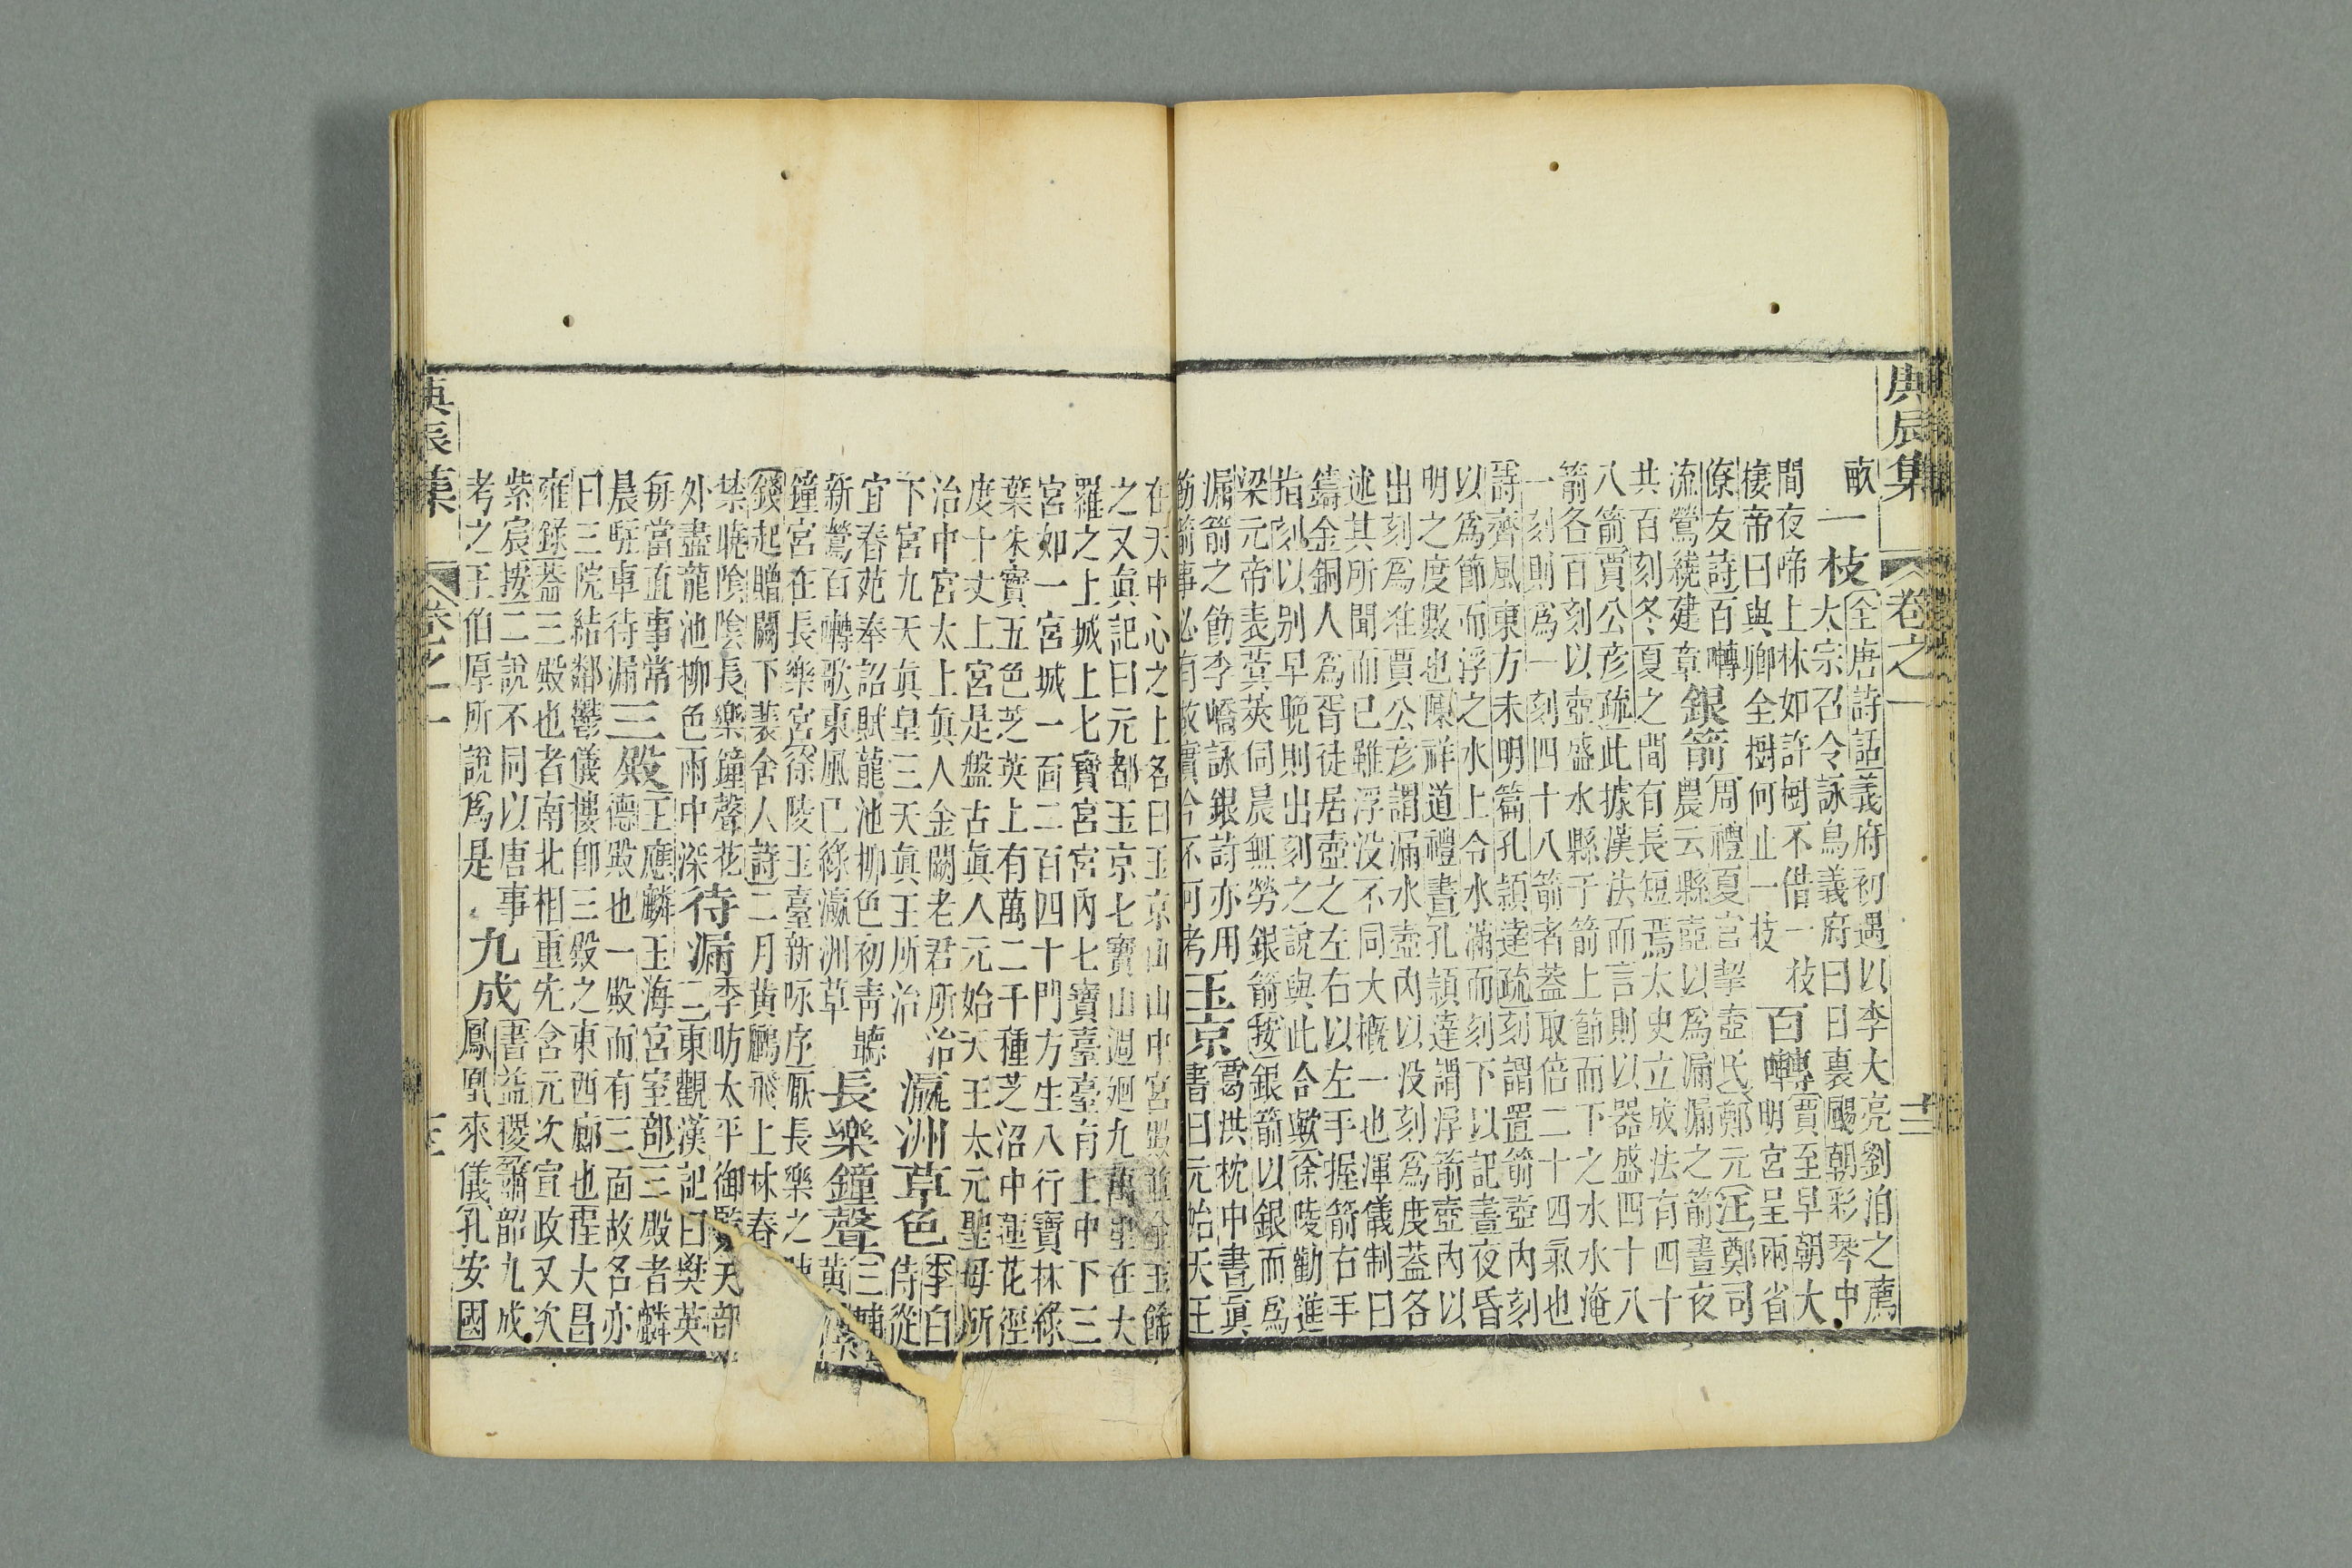 庚辰集 卷之一 十二
畝
一枝 全唐詩話義府初遇以李大亮劉洎之薦
太宗召令詠鳥義府曰日裏颺朝彩琴中
聞夜啼上林如許樹不借一枝
棲帝曰與卿全樹何止一枝
百囀 賈至早朝大
明宮呈兩省
僚友詩百囀
流鶯繞建章
銀箭 周禮夏官挈壺氏鄭元注鄭司
農云縣壺以爲漏漏之箭晝夜
共百刻冬夏之間有長短焉太史立成法有四十
八箭賈公彥疏此據漢法而言則以器盛四十八
箭各百刻以壺盛水縣于箭上節而下之水水淹
一刻則爲一刻四十八箭者蓋取倍二十四氣也
詩齊風東方未明篇孔穎達疏刻謂置箭壺內刻
以爲節而浮之水上令水滿而刻下以記晝夜昏
明之度數也陳祥道禮書孔穎達謂浮箭壺內以
出刻爲准賈公彥謂漏水壺內以沒刻爲度蓋各
述其所聞而已雖浮沒不同大概一也渾儀制曰
鑄金銅人爲胥徒居壺之左右以左手握箭右手
指刻以別早晚則出刻之說與此合歟徐陵勸進
梁元帝表蓂莢伺晨無勞銀箭按銀箭以銀而爲
漏箭之飾李嶠詠銀詩亦用
飾箭事必有故實今不可考
玉京 葛洪枕中書眞
書曰元始天王
在天中心之上名曰玉京山山中宮殿並金玉飾
之又眞記曰元都玉京七寶山週廻九萬里在大
羅之上城上七寶宮宮內七寶臺臺有上中下三
宮如一宮城一面二百四十門方生八行寶林綠
葉朱實五色芝英上有萬二千種芝沼中蓮花徑
度十丈上宮是盤古眞人元始天王太元聖母所
治中宮太上眞人金闕老君所治
下宮九天眞皇三天眞王所治
瀛洲草色 李白
侍從
宜春苑奉詔賦龍池柳色初青聽
新鶯百囀歌東風已綠瀛洲草
長樂鐘聲 三輔
黃圖
鐘宮在長樂宮徐陵玉臺新咏序厭長樂之
錢起贈闕下裴舍人詩二月黃鸝飛上林春
禁曉陰陰長樂鐘聲花
外盡龍池柳色雨中深
待漏 李昉太平御覽天部
二東觀漢記曰樊英
每當直事常
晨駐車待漏
三殿 王應麟玉海宮室部三殿者麟
德殿也一殿而有三面故名亦
曰三院結鄰鬱儀樓即三殿之東西廊也程大昌
雍錄蓋三殿也者南北相重先含元次宣政又次
紫宸按二說不同以唐事
考之王伯厚所說爲是
九成 書益稷簫韶九成
鳳凰來儀孔安國
庚辰集 卷之一 十三